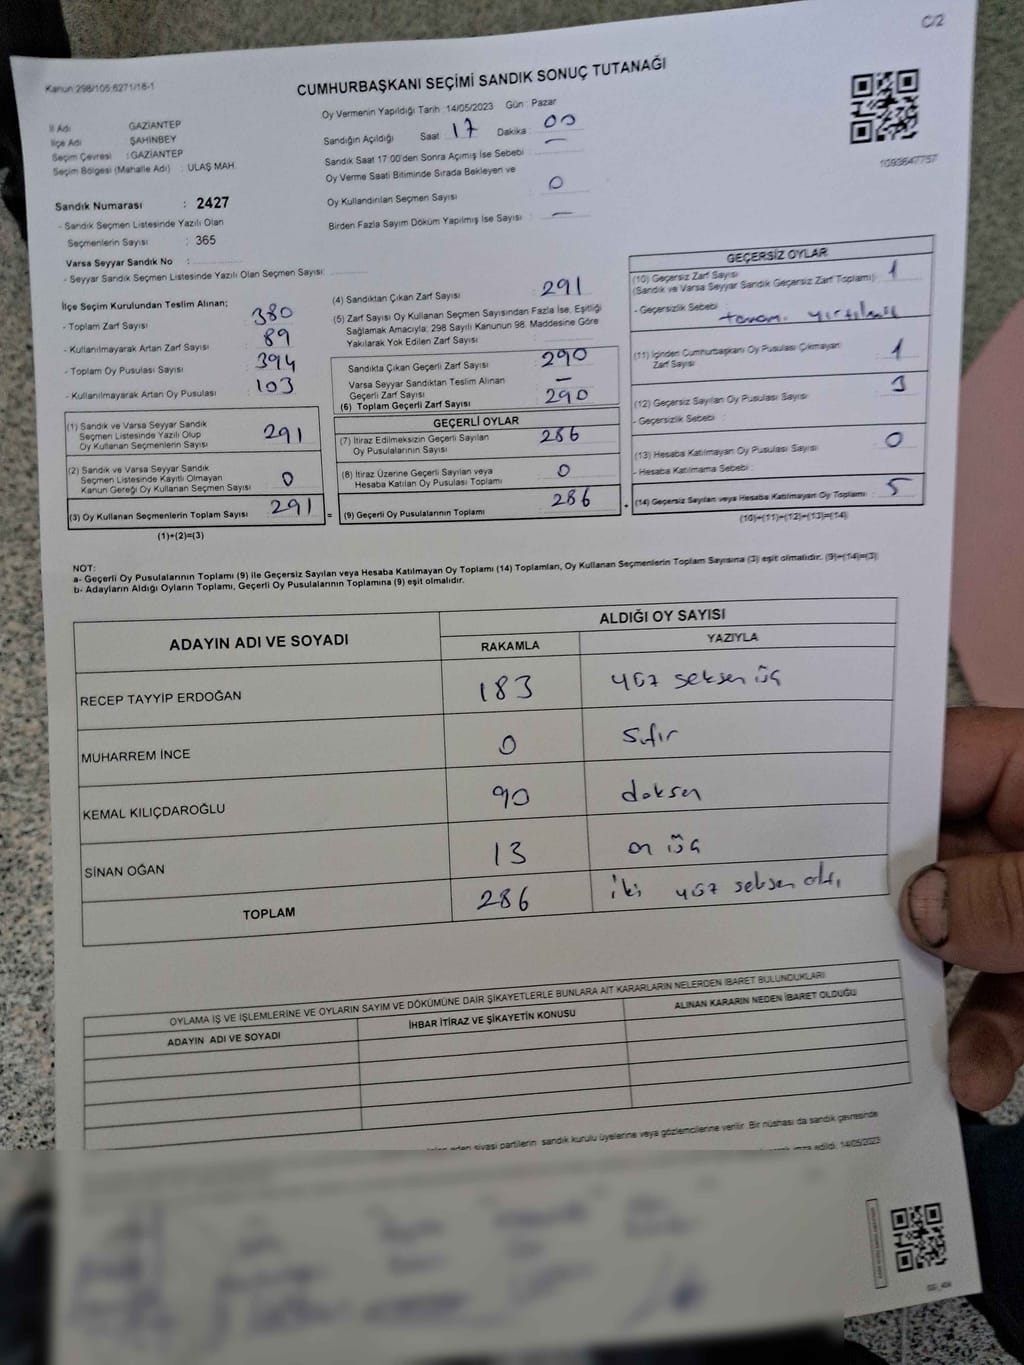 C/2
Kanun:298/105;6271/16-1
CUMHURBAŞKANI SEÇİMİ SANDIK SONUÇ TUTANAĞI
İl Adı GAZİANTEP
İlçe Adı ŞAHİNBEY
Seçim Çevresi : GAZİANTEP
Seçim Bölgesi (Mahalle Adı) : ULAŞ MAH.
Sandık Numarası : 2427
- Sandık Seçmen Listesinde Yazılı Olan
Seçmenlerin Sayısı : 365
Varsa Seyyar Sandık No :
- Seyyar Sandık Seçmen Listesinde Yazılı Olan Seçmen Sayısı:
Oy Vermenin Yapıldığı Tarih : 14/05/2023 Gün : Pazar
Sandığın Açıldığı Saat : 17 Dakika : 00
Sandık Saat 17:00'den Sonra Açımış İse Sebebi : —
Oy Verme Saati Bitiminde Sırada Bekleyen ve
Oy Kullandırılan Seçmen Sayısı : 0
Birden Fazla Sayım Döküm Yapılmış İse Sayısı : —
1093647757
İlçe Seçim Kurulundan Teslim Alınan;
- Toplam Zarf Sayısı : 380
- Kullanılmayarak Artan Zarf Sayısı : 89
- Toplam Oy Pusulası Sayısı : 394
- Kullanılmayarak Artan Oy Pusulası : 103
(1) Sandık ve Varsa Seyyar Sandık
Seçmen Listesinde Yazılı Olup
Oy Kullanan Seçmenlerin Sayısı : 291
(2) Sandık ve Varsa Seyyar Sandık
Seçmen Listesinde Kayıtlı Olmayan
Kanun Gereği Oy Kullanan Seçmen Sayısı : 0
(3) Oy Kullanan Seçmenlerin Toplam Sayısı : 291 =
(1)+(2)=(3)
(4) Sandıktan Çıkan Zarf Sayısı : 291
(5) Zarf Sayısı Oy Kullanan Seçmen Sayısından Fazla İse, Eşitliği
Sağlamak Amacıyla; 298 Sayılı Kanunun 98. Maddesine Göre
Yakılarak Yok Edilen Zarf Sayısı :
Sandıkta Çıkan Geçerli Zarf Sayısı : 290
Varsa Seyyar Sandıktan Teslim Alınan
Geçerli Zarf Sayısı : —
(6) Toplam Geçerli Zarf Sayısı : 290
GEÇERLİ OYLAR
(7) İtiraz Edilmeksizin Geçerli Sayılan
Oy Pusulalarının Sayısı : 286
(8) İtiraz Üzerine Geçerli Sayılan veya
Hesaba Katılan Oy Pusulası Toplamı : 0
(9) Geçerli Oy Pusulalarının Toplamı : 286 +
GEÇERSİZ OYLAR
(10) Geçersiz Zarf Sayısı
(Sandık ve Varsa Seyyar Sandık Geçersiz Zarf Toplamı) : 1
- Geçersizlik Sebebi : yırtılmış
(11) İçinden Cumhurbaşkanı Oy Pusulası Çıkmayan
Zarf Sayısı : 1
(12) Geçersiz Sayılan Oy Pusulası Sayısı : 3
- Geçersizlik Sebebi :
(13) Hesaba Katılmayan Oy Pusulası Sayısı : 0
- Hesaba Katılmama Sebebi :
(14) Geçersiz Sayılan veya Hesaba Katılmayan Oy Toplamı : 5
(10)+(11)+(12)+(13)=(14)
NOT:
a- Geçerli Oy Pusulalarının Toplamı (9) ile Geçersiz Sayılan veya Hesaba Katılmayan Oy Toplamı (14) Toplamları, Oy Kullanan Seçmenlerin Toplam Sayısına (3) eşit olmalıdır. (9)+(14)=(3)
b- Adayların Aldığı Oyların Toplamı, Geçerli Oy Pusulalarının Toplamına (9) eşit olmalıdır.
ADAYIN ADI VE SOYADI ALDIĞI OY SAYISI
RAKAMLA YAZIYLA
RECEP TAYYİP ERDOĞAN 183 yüz seksen üç
MUHARREM İNCE 0 Sıfır
KEMAL KILIÇDAROĞLU 90 doksan
SİNAN OĞAN 13 on üç
TOPLAM 286 iki yüz seksen altı
OYLAMA İŞ VE İŞLEMLERİNE VE OYLARIN SAYIM VE DÖKÜMÜNE DAİR ŞİKAYETLERLE BUNLARA AİT KARARLARIN NELERDEN İBARET BULUNDUKLARI
ADAYIN ADI VE SOYADI İHBAR İTİRAZ VE ŞİKAYETİN KONUSU ALINAN KARARIN NEDEN İBARET OLDUĞU
eden siyasi partilerin sandık kurulu üyelerine veya gözlemcilerine verilir. Bir nüshası da sandık çevresinde
imza edildi. 14/05/2023